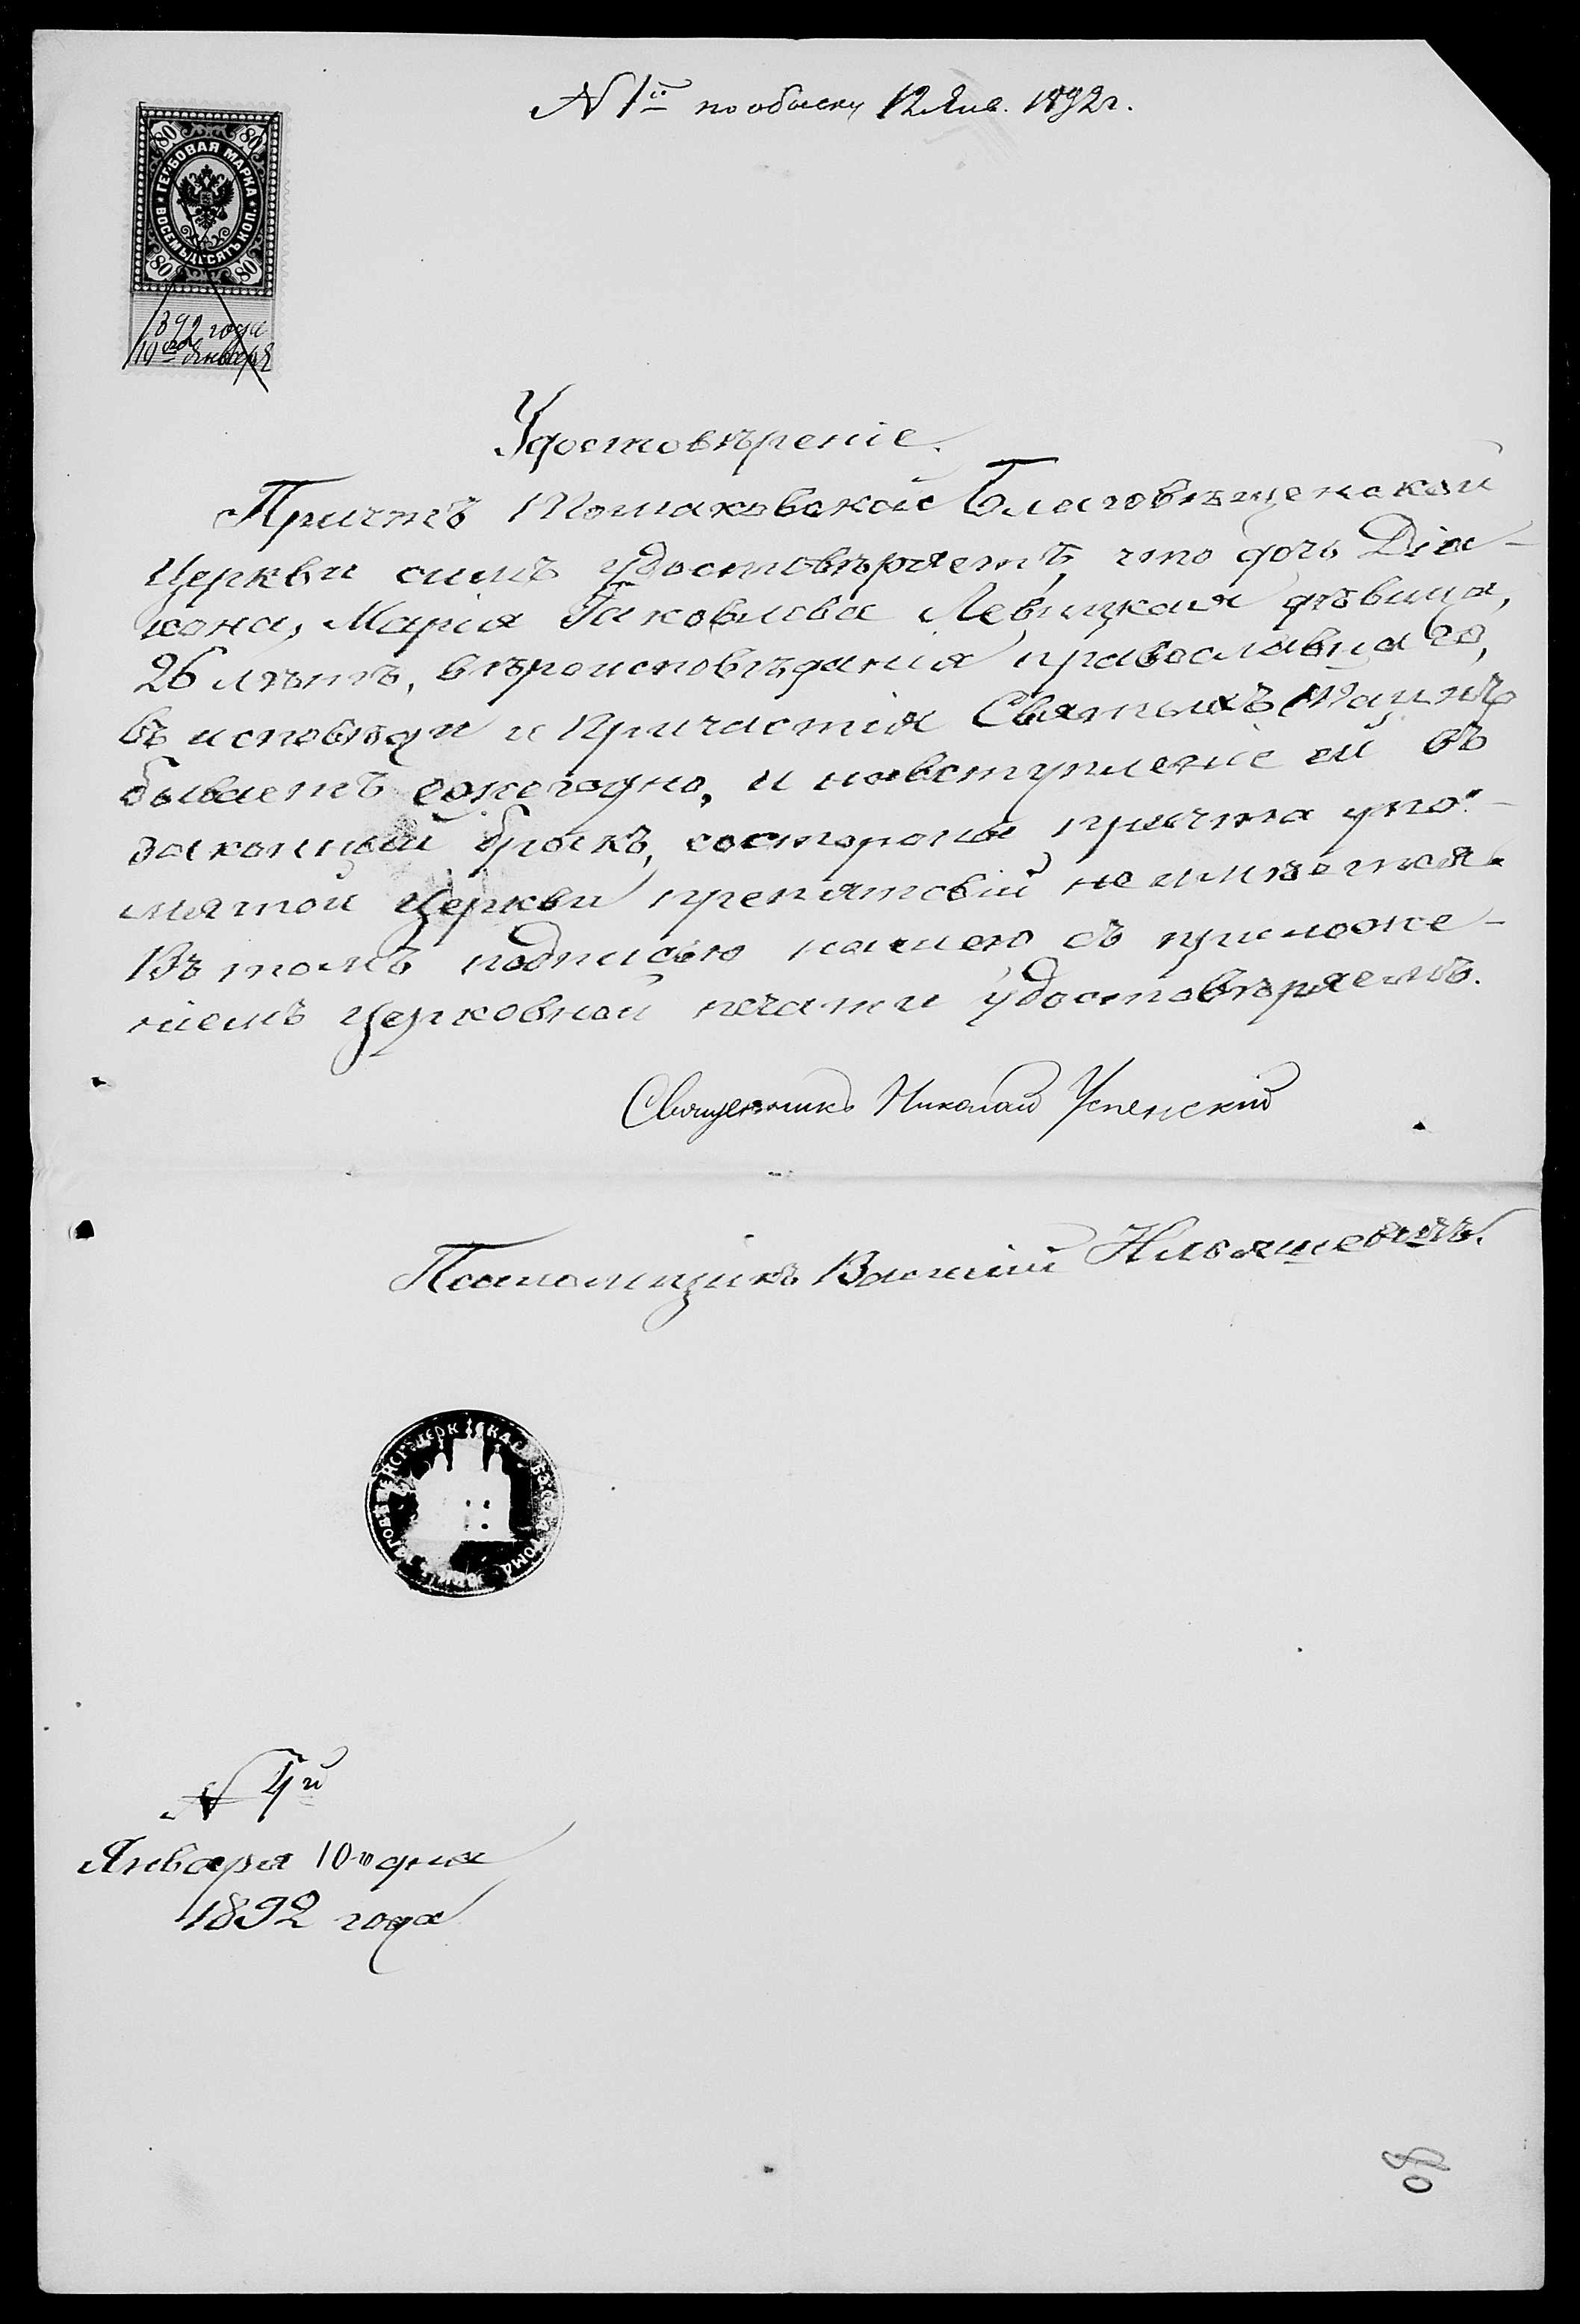 № 1й по обыску 12 Янв. 1892 г.
80 80
ГЕРБОВАЯ МАРКА
ВОСЕМЬДЕСЯТЪ КОП.
80 80
1892 года
10го Января
Удостовѣреніе.
Причтъ Томаковской Благовѣщенской
Церкви симъ удостовѣряетъ, что дочь Діа-
кона, Марія Іаковлева Левицкая дѣвица,
26 лѣтъ, вѣроисповѣданія православнаго,
въ исповѣди и Причастія Святыхъ Таинъ
бываетъ ежегодно, и навступленіе ей въ
законный бракъ, состороны причта упо-
мятой Церкви препятсвій неимѣется.
Въ томъ подписью нашею съ приложе-
ніемъ Церковной печати удостовѣряемъ.
Священникъ Николай Успенскій
Псаломщикъ Василій Ильяшевичъ.
№ 4й
Января 10го дня
1892 года